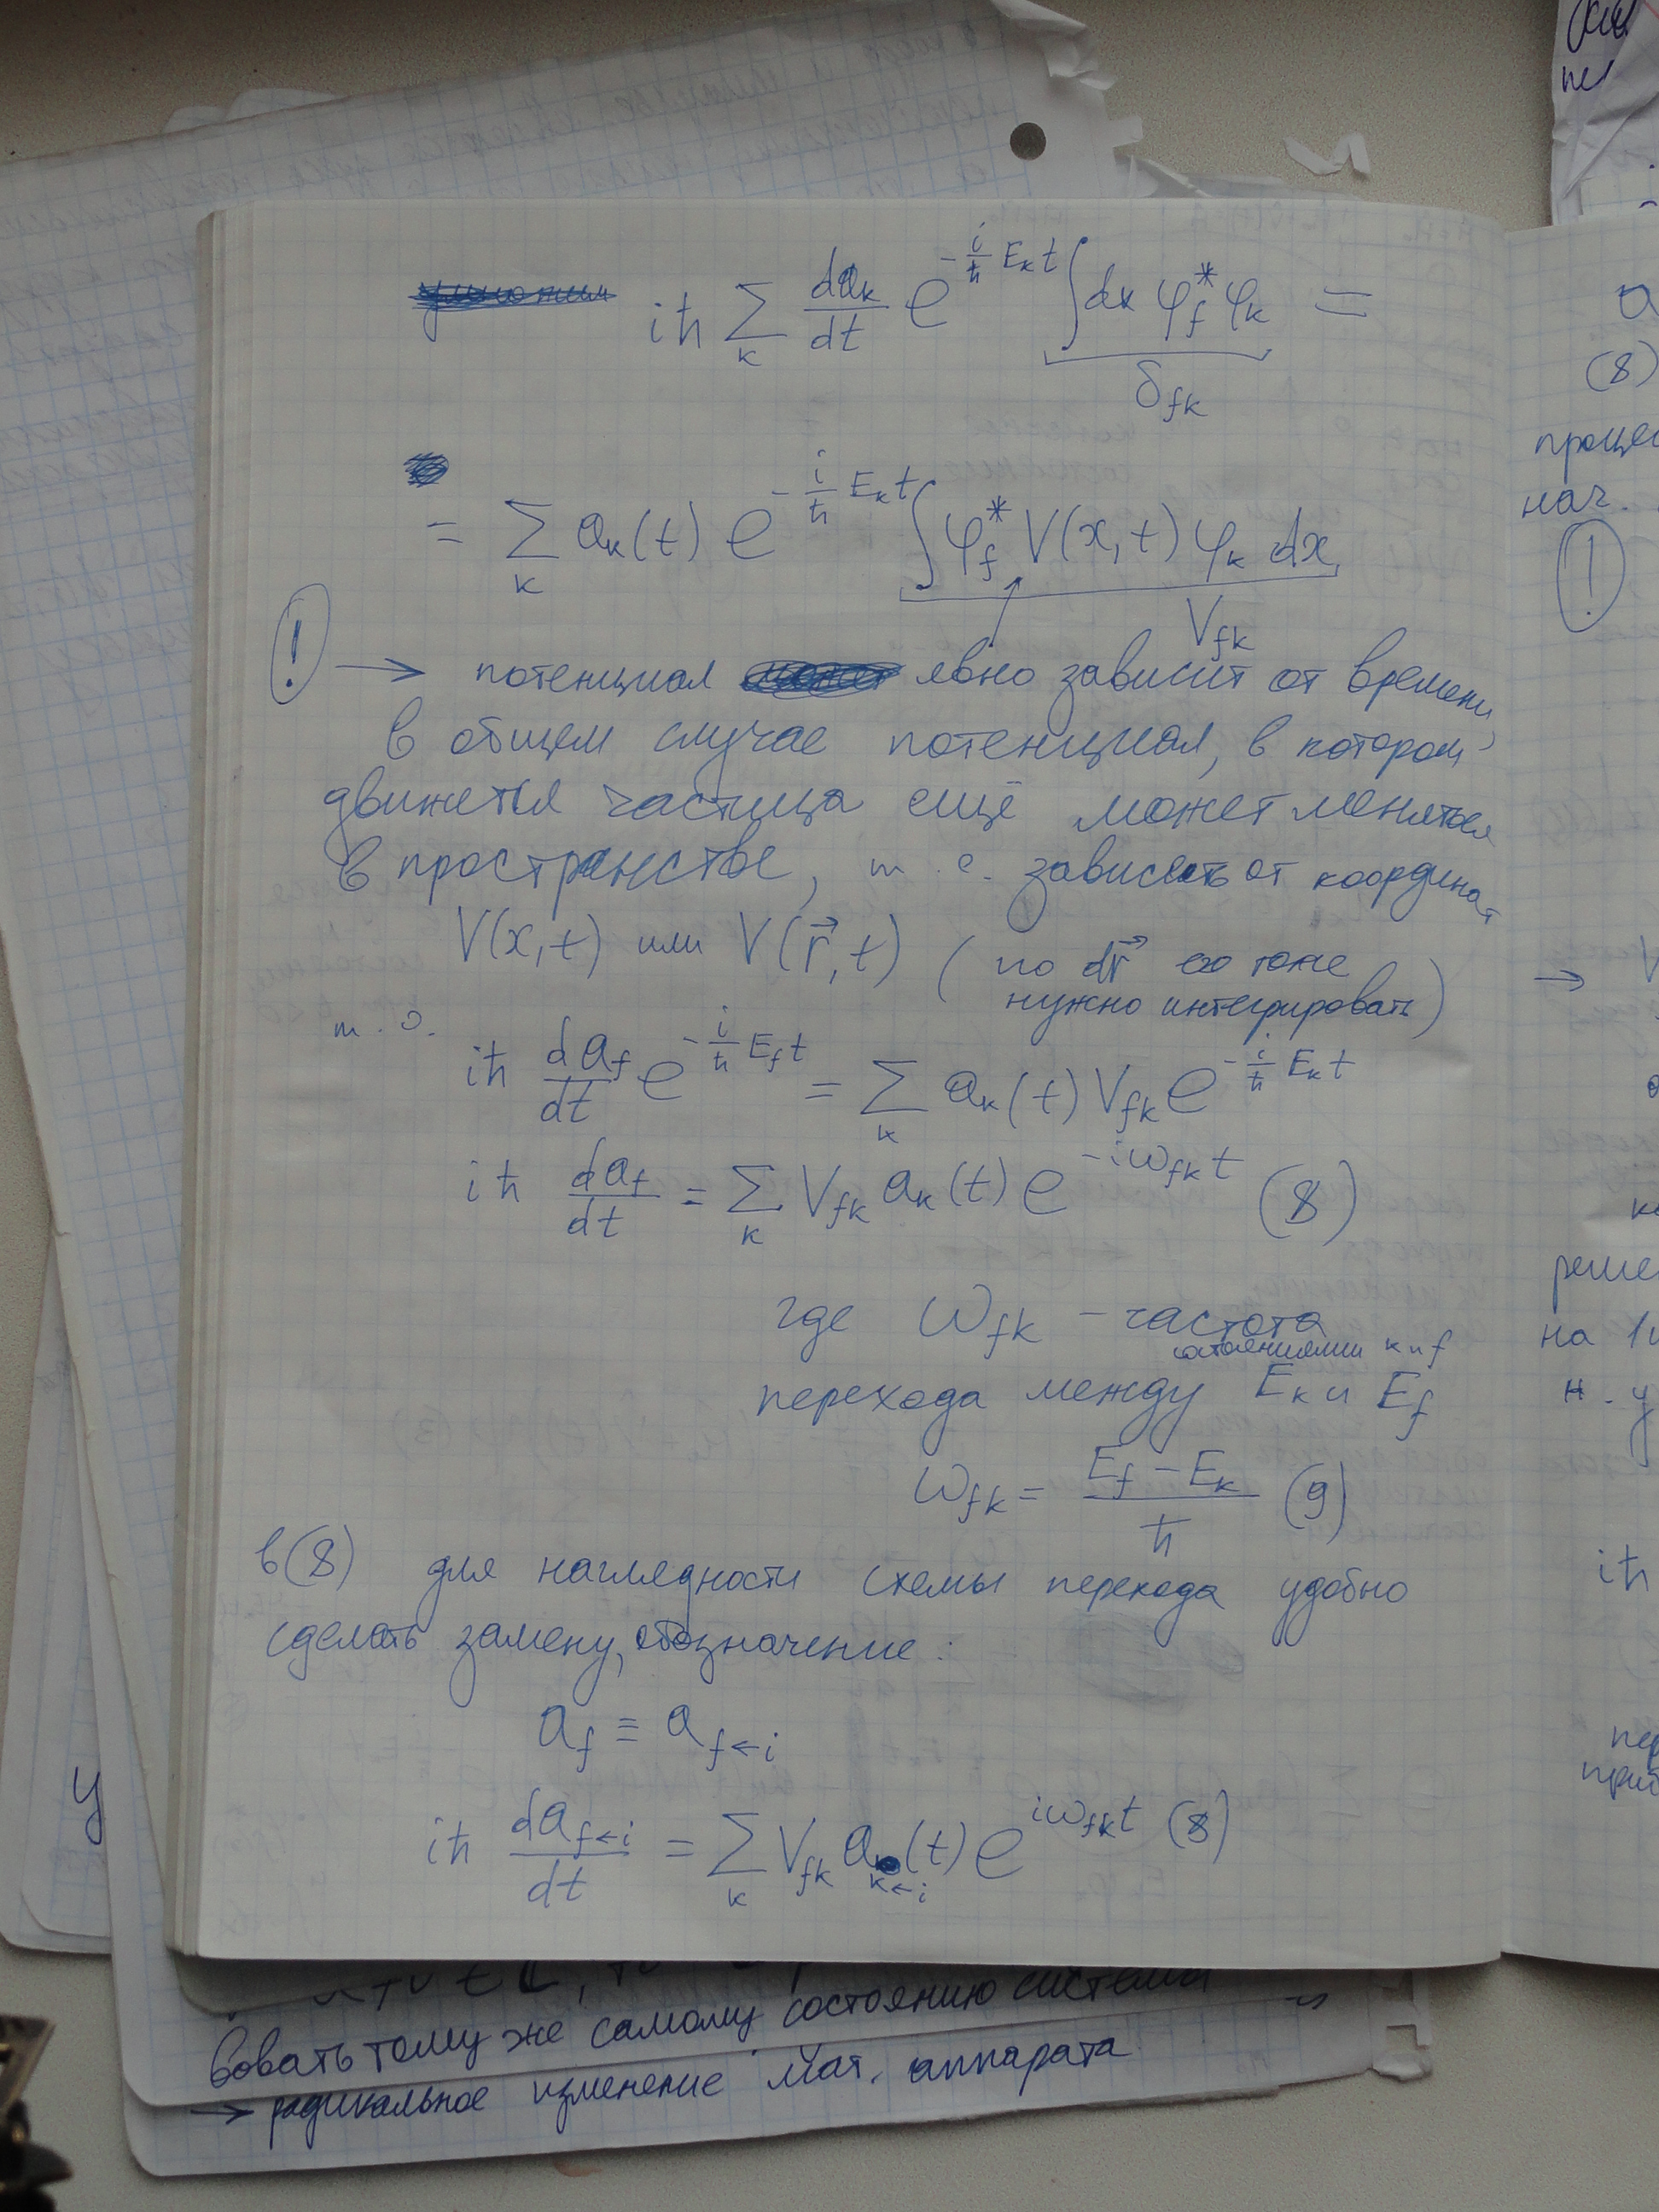 iħ ∑_k da_k/dt e^{-i/ħ E_k t} ∫dx φ_f^* φ_k =
δ_fk
= ∑_k a_k(t) e^{-i/ħ E_k t} ∫φ_f^* V(x,t) φ_k dx
V_fk
! → потенциал явно зависит от времени,
в общем случае потенциал, в котором
движется частица ещё может меняться
в пространстве, т.е. зависеть от координат
V(x,t) или V(r⃗,t) (по dr⃗ его тоже
нужно интегрировать)
т.о.
iħ da_f/dt e^{-i/ħ E_f t} = ∑_k a_k(t) V_fk e^{-i/ħ E_k t}
iħ da_f/dt = ∑_k V_fk a_k(t) e^{-iω_fk t} (8)
где ω_fk - частота
состояниями k и f
перехода между E_k и E_f
ω_fk = (E_f - E_k)/ħ (9)
в (8) для наглядности схемы перехода удобно
сделать замену, обозначение:
a_f ≡ a_{f←i}
iħ da_{f←i}/dt = ∑_k V_fk a_{k←i}(t) e^{iω_fk t} (8)
(8)
процес
нач.
!
→ V
реше
на
н. у
iħ
пер
приб
У
вовать тому же самому состоянию системы
→ радикальное изменение мат. аппарата